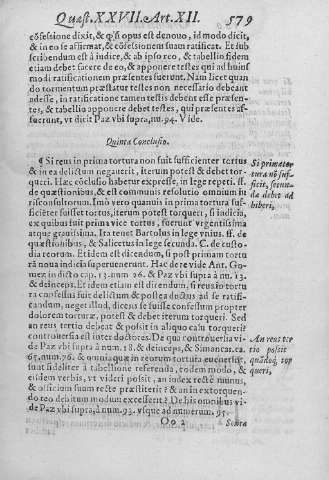 Quæst. XXVII. Art. XII. 579
cõfessione dixit, & q̃ si opus est denouo, id modo dicit,
& in eo se affirmat, & cõfessionem suam ratificat. Et sub
scribendum est à iudice, & ab ipso reo, & tabellio fidem
etiam debet facere de eo, & apponere testes qui ad huius
modi ratificationem præsentes fuerunt. Nam licet quan
do tormentum præstatur testes non necessario debeant
adesse, in ratificatione tamen testes debent esse præsen-
tes, & tabellio apponere debet testes, qui præsentes af-
fuerunt, vt dicit Paz vbi supra, nu. 94. Vide.
Quinta Conclusio.
¶ Si reus in prima tortura non fuit sufficienter tortus
& in ea delictum negauerit, iterum potest & debet tor-
queri. Hæc cõclusio habetur expresse, in lege repeti. ff.
de quæstionibus, & est communis resolutio omnium iu
risconsultorum. Imò vero quamuis in prima tortura suf-
ficiẽter fuisset tortus, iterum potest torqueri, si indicia,
ex quibus fuit prima vice tortus, fuerunt vrgentissima
atque grauissima. Ita tenet Bartolus in lege vnius. ff. de
quæstionibus, & Salicetus in lege secunda. C. de custo-
dia reorum. Et idem est dicendum, si post primam tortu
rã noua indicia superuenerunt. Hac de re vide Ant. Go-
mez in dicto cap. 13. num. 26. & Paz vbi supra à nu. 13.
& deinceps. Et idem etiam est dicendum, si reus in tortu
ra confessus fuit delictum & postea ductus ad se ratifi-
candum, neget illud, dicens se fuisse confessum propter
dolorem torturæ, potest & debet iterum torqueri. Sed
an reus tertio debeat & possit in aliquo casu torqueri?
controuersia est inter doctores. De qua controuersia vi-
de Paz vbi supra à num. 18. & deinceps, & Simancas. ca.
65. num. 76. & omnia quæ in reorum tortura euenerint,
sunt fideliter à tabellione referenda, eodem modo, &
eisdem verbis, vt videri possit, an iudex rectè munus,
& officium suum recte præstiterit? & an in extorquen-
do reo debitum modum excesserit? De his omnibus vi-
de Paz vbi supra, à num. 93. vsque ad numerum, 95.
Oo 2 Sexta
Si prima tor
tura nõ suf-
ficit, secun-
da debet ad
hiberi,
An reus ter
tio possit
quandoq; tor
queri,